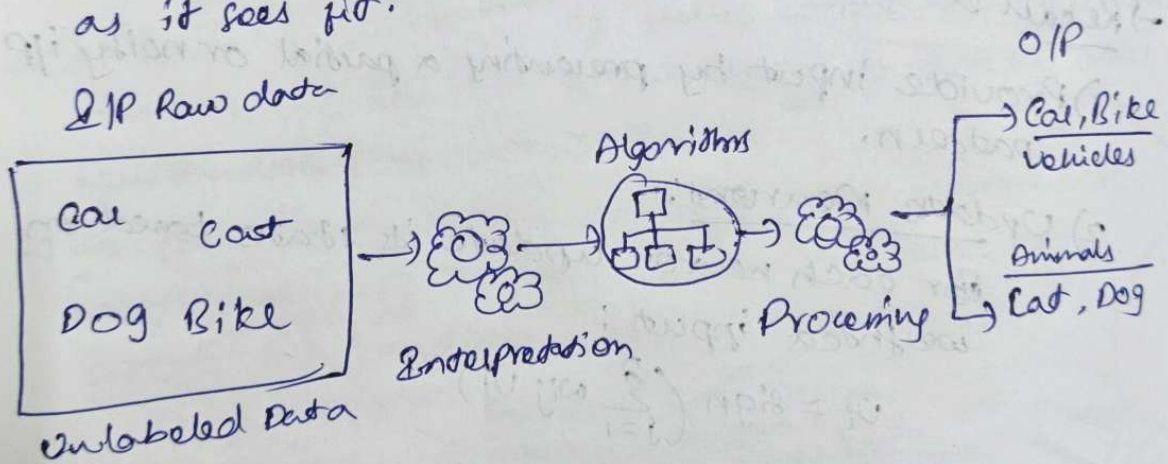 as it sees fit.
I/P Raw data
Car
Cat
Dog Bike
Unlabeled Data
Interpretation
Algorithms
Processing
O/P
Car, Bike
Vehicles
Animals
Cat, Dog